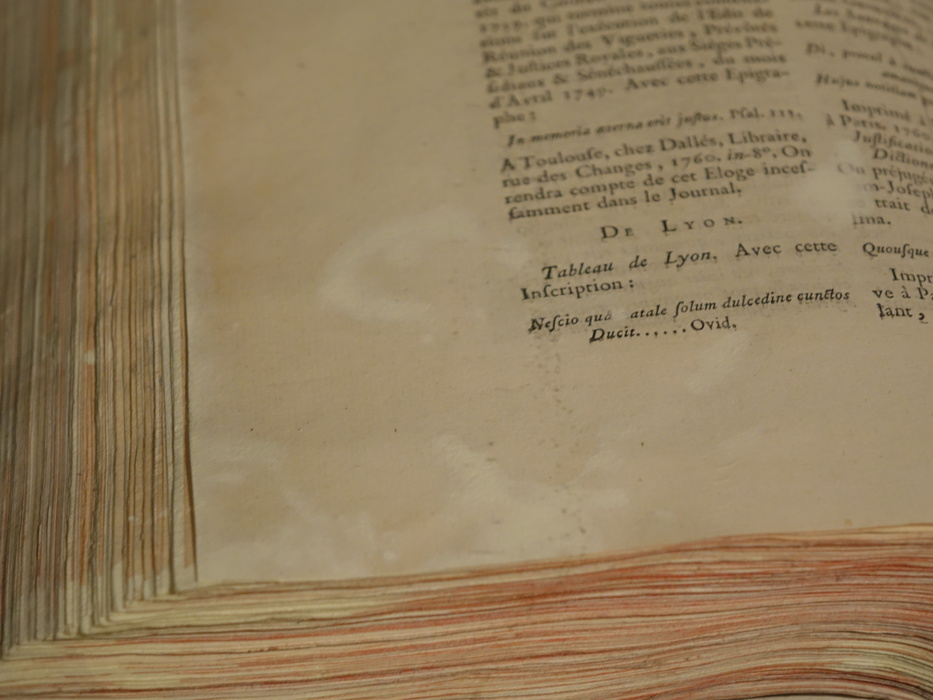 1729. qui nomme toutes
sions sur l'exécution de l'Edit de
Réunion des Vigueries, Prévôtés
& Justices Royales, aux Siéges Pré-
sidiaux & Sénéchaussées, du mois
d'Avril 1749. Avec cette Epigra-
phe :
In memoria æterna erit justus. Psal. 111.
A Toulouse, chez Dallés, Libraire,
rue des Changes, 1760. in-8°. On
rendra compte de cet Eloge inces-
samment dans le Journal.
DE LYON.
Tableau de Lyon. Avec cette
Inscription :
Nescio quâ atale solum dulcedine cunctos
Ducit...... Ovid.
cette Epigraphe.
Imprimé à
à Paris, 1760
Justification
Diction
On préjugé
m-Joseph
trait de
ima.
Quousque
Impr
ve à Pa
lant,